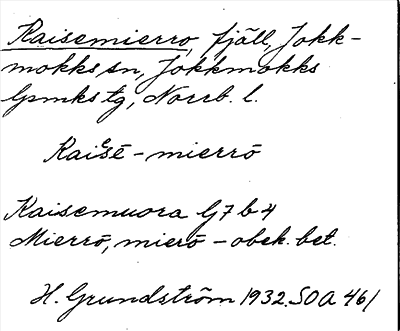 Raisemierro, fjäll, Jokk-
mokks sn, Jokkmokks
lpmks tg, Norrb. l.
Raiᵉsē-mierrō
Kaisemuora G7 b4
Mierrō, mierō - obek. bet.
H. Grundström 1932. SOA 461